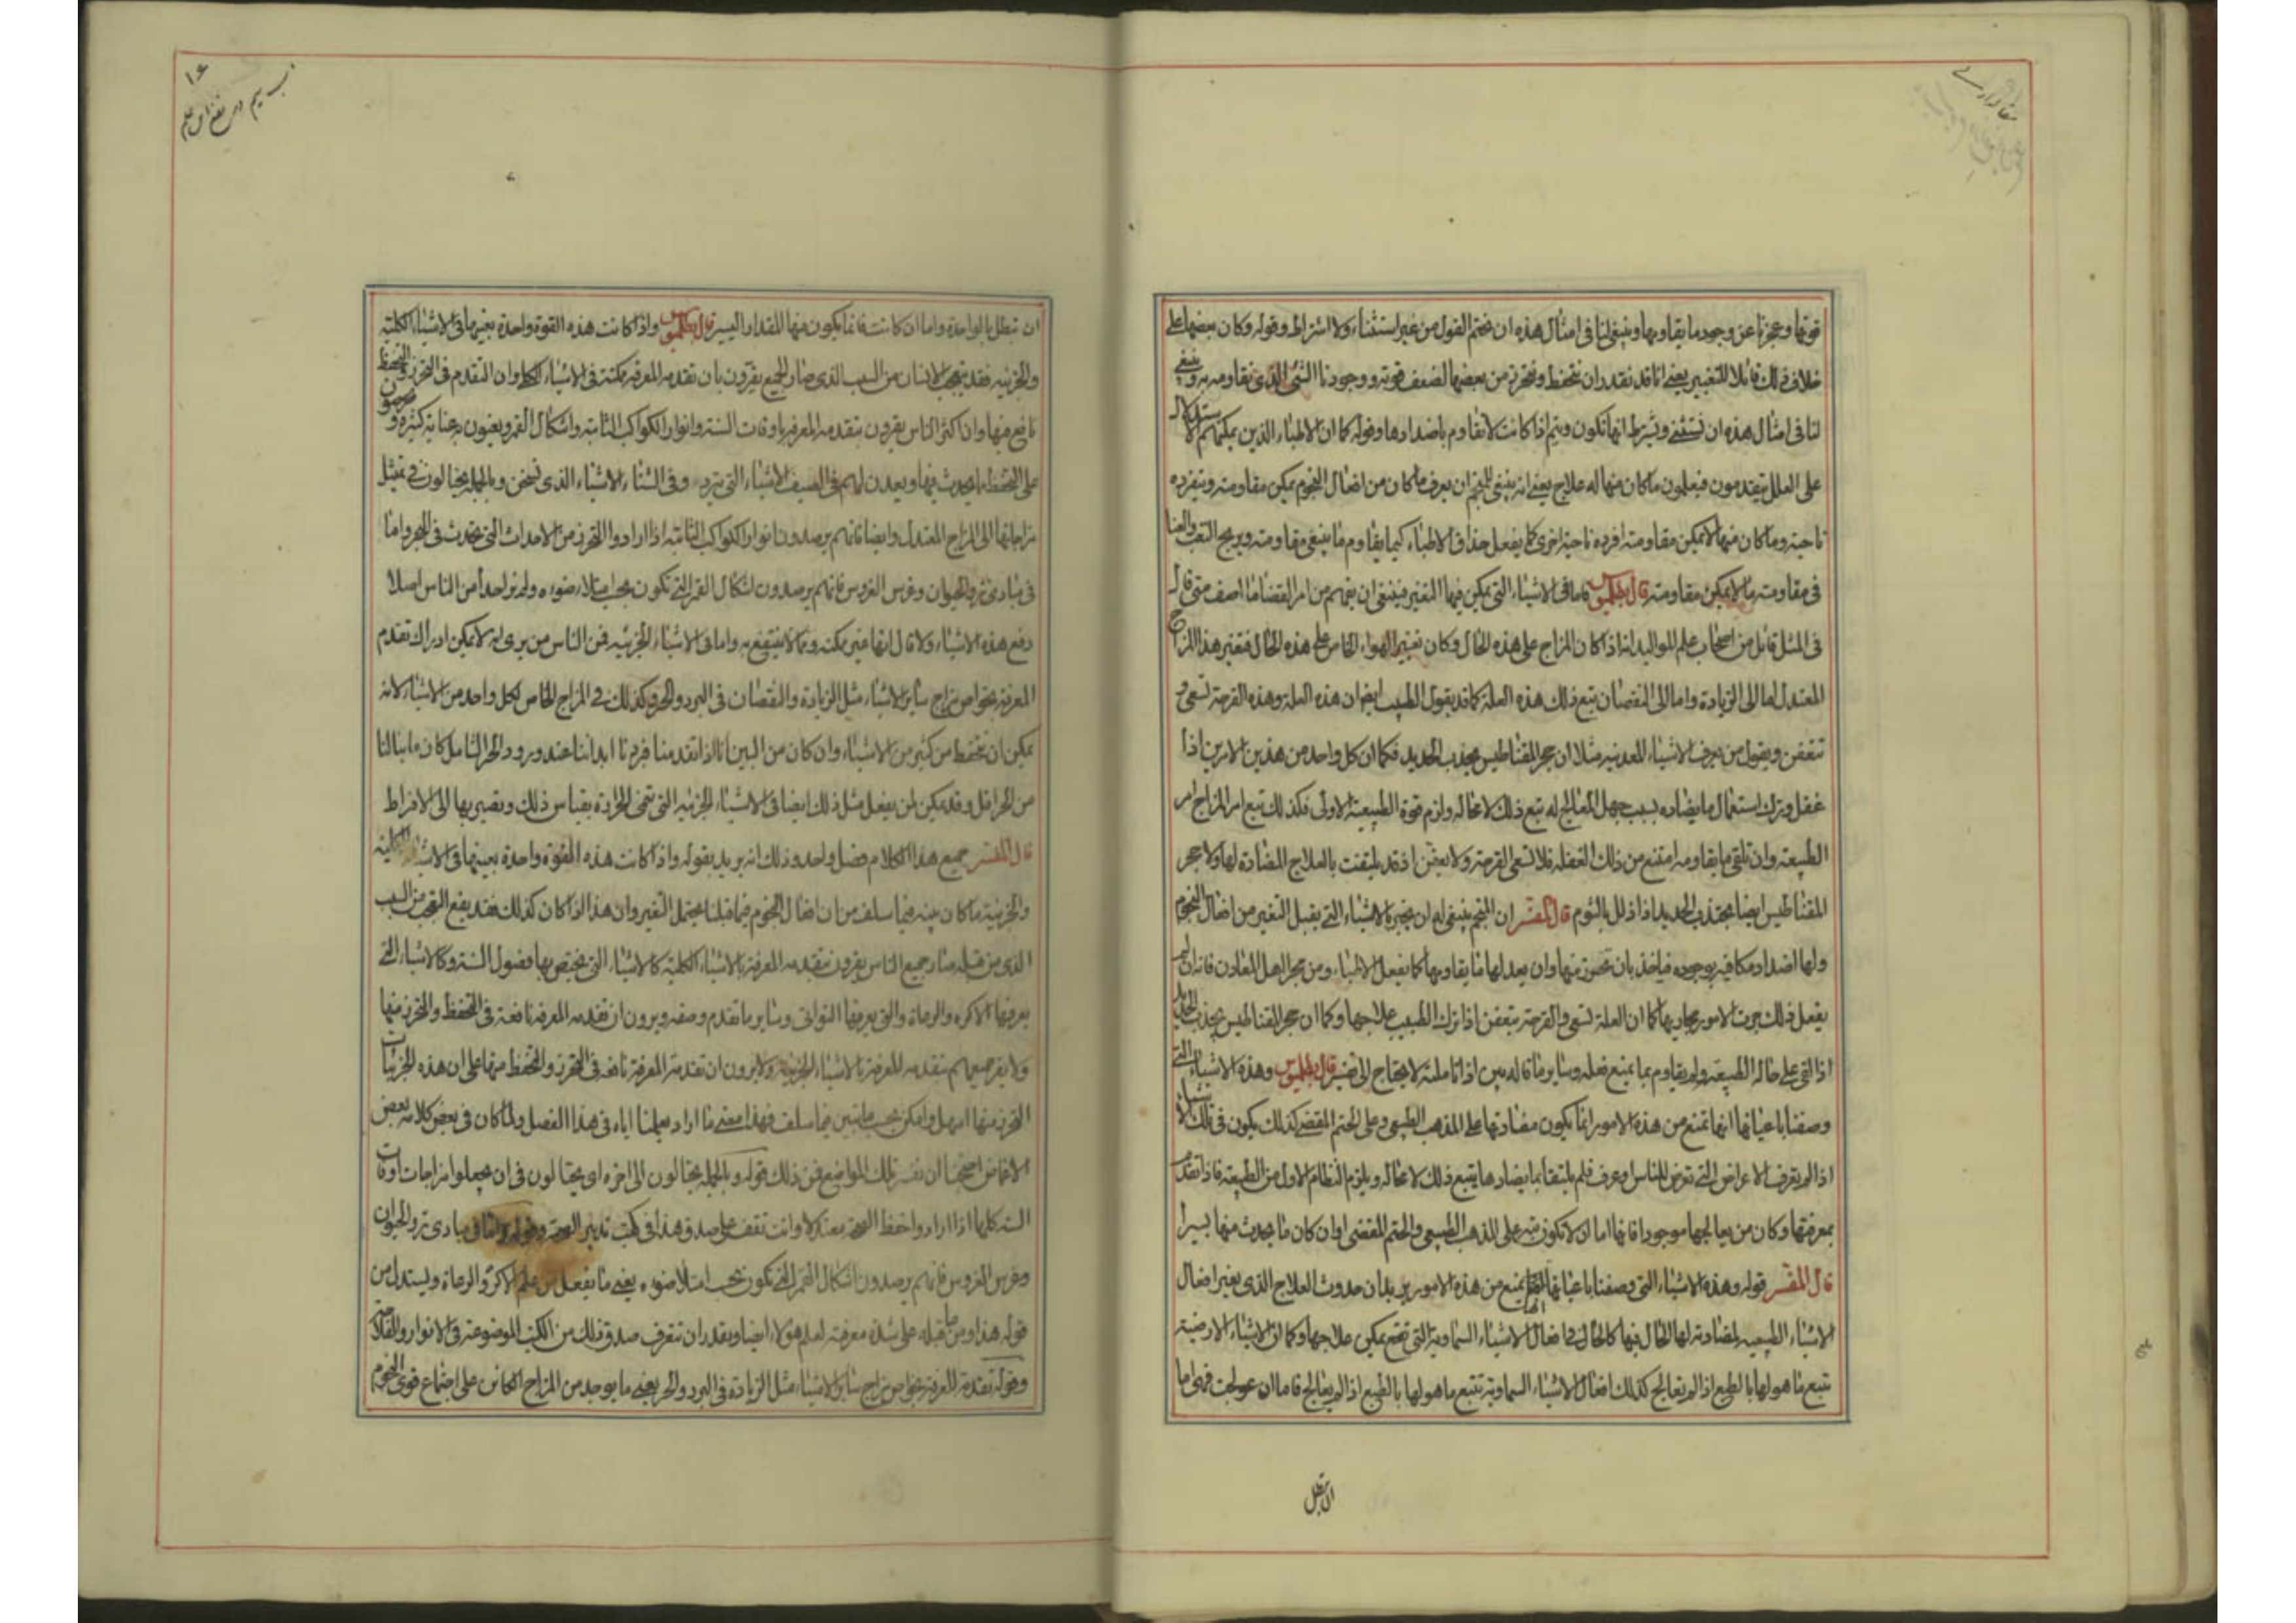 قوتها وعجزنا عن وجود ما يقاومها وينبغي لنا في امثال هذه ان نختم القول من غير استثناء ولا اشتراط وقوله وكان بعضها على
خلاف ذلك قابلا للتغيير يعني انا قد نقدر ان نتحفظ ونتحرز من بعضها لضعف قوته ووجودنا الشي الذي يقاومه به وينبغي
لنا في امثال هذه ان نستثني ونشرط انها تكون وتتم اذا كانت لا تقاوم باضدادها وقوله كما ان الاطباء الذين يمكنهم الاستدلال
على العلل يتقدمون فيعلمون ما كان منها له علاج يعني انه ينبغي للمنجم ان يعرف ما كان من افعال النجوم يمكن مقاومته ويفرده
ناحية وما كان منها لا يمكن مقاومته افرده ناحية اخرى كما يفعل حذاق الاطباء كيما يقاوم ما ينبغي مقاومته ويريح التعب والعنا
في مقاومته ما لا يمكن مقاومته قال بطلميوس فاما في الاشياء التي يمكن فيها التغير فينبغي ان يفهم من امر القضا ما اصف متى قال
في المثل قائل من اصحاب علم المواليد انه اذا كان المزاج على هذه الحال وكان تغيير الهواء الخاص على هذه الحال فتغير هذا المزاج
المعتدل اما الى الزيادة واما الى النقصان تبع ذلك هذه العلة كما قد يقول الطبيب ايضا ان هذه العلة وهذه القرحة تسعى و
تتعفن ويقول من يعرف الاشياء المعدنية مثلا ان حجر المقناطيس يجذب الحديد فكما ان كل واحد من هذين الامرين اذا
غفل وترك استعمال ما يضاده بسبب جهل المعالج له تبع ذلك لا محالة ولزم قوة الطبيعة الاولى فكذلك تبع امر المزاج امر
الطبيعة وان تلقى ما يقاومه امتنع من ذلك الغفلة فلا تسعى القرحة ولا تعفن اذ قد يلتفت بالعلاج المضادة لها ولا حجر
المقناطيس ايضا يجتذب الحديد اذا دلك بالثوم قال المفسر ان المنجم ينبغي له ان يخبر بالاشياء التي يقبل التغير من افعال النجوم
ولها اضداد مكافية موجوده فياخذ بان تحرز منها وان يعد لها ما يقاومها كما يفعل الاطباء ومن يجر اهل المعادن فانه ان لم
يفعل ذلك جرت الامور مجاريها كما ان العلة تسعى والقرحة تتعفن اذا ترك الطبيب علاجها وكما ان حجر المقناطيس يجذب الحديد
اذا القي على حاله الطبيعة ولم يقاوم بما يمنع فعله وسائر ما قاله بين اذا تاملته لا يحتاج الى تفسير قال بطلميوس وهذه الاشياء التي
وصفنا باعيانها انها تمنع من هذه الامور انما يكون مضادتها على المذهب الطبيعي وعلى الحتم المقضي كذلك يكون في تلك الاشياء
اذا لم تعرف الاعراض التي تعرض للناس وعرف فلم يلتقها بما يضادها يتبع ذلك لا محالة ويلزم النظام الاول من الطبيعة فاذا تقدم
بمعرفتها وكان من يعالجها موجودا فانها اما ان لا تكون بتة على المذهب الطبيعي والحتم المقضي او ان كان ما يحدث منها يسيرا
قال المفسر قوله وهذه الاشياء التي وصفنا باعيانها انها تمنع من هذه الامور يريد ان حدوث العلاج الذي يغير افعال
الاشياء الطبيعيه لمضادته لها الحال فيها كالحال في افعال الاشياء السماوية التي تقع يمكن علاجها وكما ان الاشياء الارضية
تتبع ما هو لها بالطبع اذا لم تعالج كذلك افعال الاشياء السماوية تتبع ما هو لها بالطبع اذا لم يعالج فاما ان عولجت فهي اما
ان تبطل
ان تبطل بالواحدة واما ان كانت فانما يكون منها المقدار اليسير قال بطلميوس واذا كانت هذه القوة واحدة بعينها في الاشياء الكلية
والجزئية فقد يتعجب الانسان من السبب الذي صار له الجميع يقرون بان تقدمه المعرفة ممكنة في الاشياء الكلية وان التقدم في التحرز والتحفظ
نافع منها وان اكثر الناس يقرون بتقدمه المعرفة باوقات السنة وانوار الكواكب الثابتة واشكال القمر ويعنون به عناية كثيرة ويحرصون
على التحفظ مما يحدث فيها ويعدون لهم في الصيف الاشياء التي تبرد وفي الشتاء الاشياء الذي تسخن وبالجملة يحتالون في تمثيل
مزاجاتها الى المزاج المعتدل وايضا فانهم يرصدون انوار الكواكب الثابتة اذا ارادوا التحرز من الاحداث التي تحدث في البحر واما
في مبادي نزو الحيوان وغرس الغروس فانهم يرصدون اشكال القمر التي تكون بحسب امتلاء ضوءه ولم نر احدا من الناس اصلا
دفع هذه الاشياء ولا قال انها غير ممكنة ومما لا ينتفع به واما في الاشياء الجزئيه فمن الناس من يرى انه لا يمكن ادراك تقدم
المعرفة بخواص مزاج سائر الاشياء مثل الزيادة والنقصان في البرد والحر وكذلك في المزاج الخاص لكل واحد من الاشياء لانه
يمكن ان نتحفظ من كثير من الاشياء وان كان من البين انا اذا تقدمنا فبردنا ابداننا عند ورود الحر الشامل كان ما ينالنا
من الحر اقل وقد يمكن ان يفعل مثل ذلك ايضا في الاشياء الجزئيه التي تنمي الحرارة بقياس ذلك وتصير بها الى الافراط
قال المفسر جميع هذا الكلام فصل واحد وذلك انه يريد بقوله واذا كانت هذه القوة واحدة بعينها في الاشياء الكلية
والجزئية ما كان بينه فيما سلف من ان افعال النجوم فيما قبلنا يحتمل التغير وان هذا اذا كان كذلك فقد يقع التعجب من السبب
الذي من قبله صار جميع الناس يقرون بتقدمه المعرفة بالاشياء الكلية كالاشياء التي يختص بها فصول السنة وكالاشياء التي
يعرفها الاكره والرعاة والتي يعرفها النواتي وسائر ما تقدم وصفه ويرون ان تقدمه المعرفة نافعة في التحفظ والتحرز منها
ولا يقر جميعهم بتقدمه المعرفة بالاشياء الجزئية ولا يرون ان تقدمة المعرفة نافعة في التحرز والتحفظ منها على ان هذه الجزئيات
التحرز منها اسهل وامكن بحسب ما تبين فيما سلف فهذا معنى ما اراد يعلمنا اياه في هذا الفصل ولما كان في بعض كلامه بعض
الاغماض احتجنا ان نفسر تلك المواضع فمن ذلك قوله وبالجملة يحتالون الى اخره اي يحتالون في ان يجعلوا مزاجات اوقات
السنة كلها اذا ارادوا حفظ الصحة معتدلا وانت تقف على صدق هذا في كتب تدبير الصحة وقوله واما في مبادي نزو الحيوان
وغرس الغروس فانهم يرصدون اشكال القمر التي تكون بحسب امتلا ضوءه يعني ما يفعل من علم الاكرة والرعاة ويستدل من
قوله هذا ومن ما قبله على شدة معرفته لعلم هولاء ايضا ويقدر ان تتعرف صدق ذلك من الكتب الموضوعة في الانوار والفلاحة
وقوله تقدمة المعرفة بخواص مزاج سائر الاشياء مثل الزيادة في البرد والحر يعني ما يوجد من المزاج الكائن على اجتماع قوى النجوم